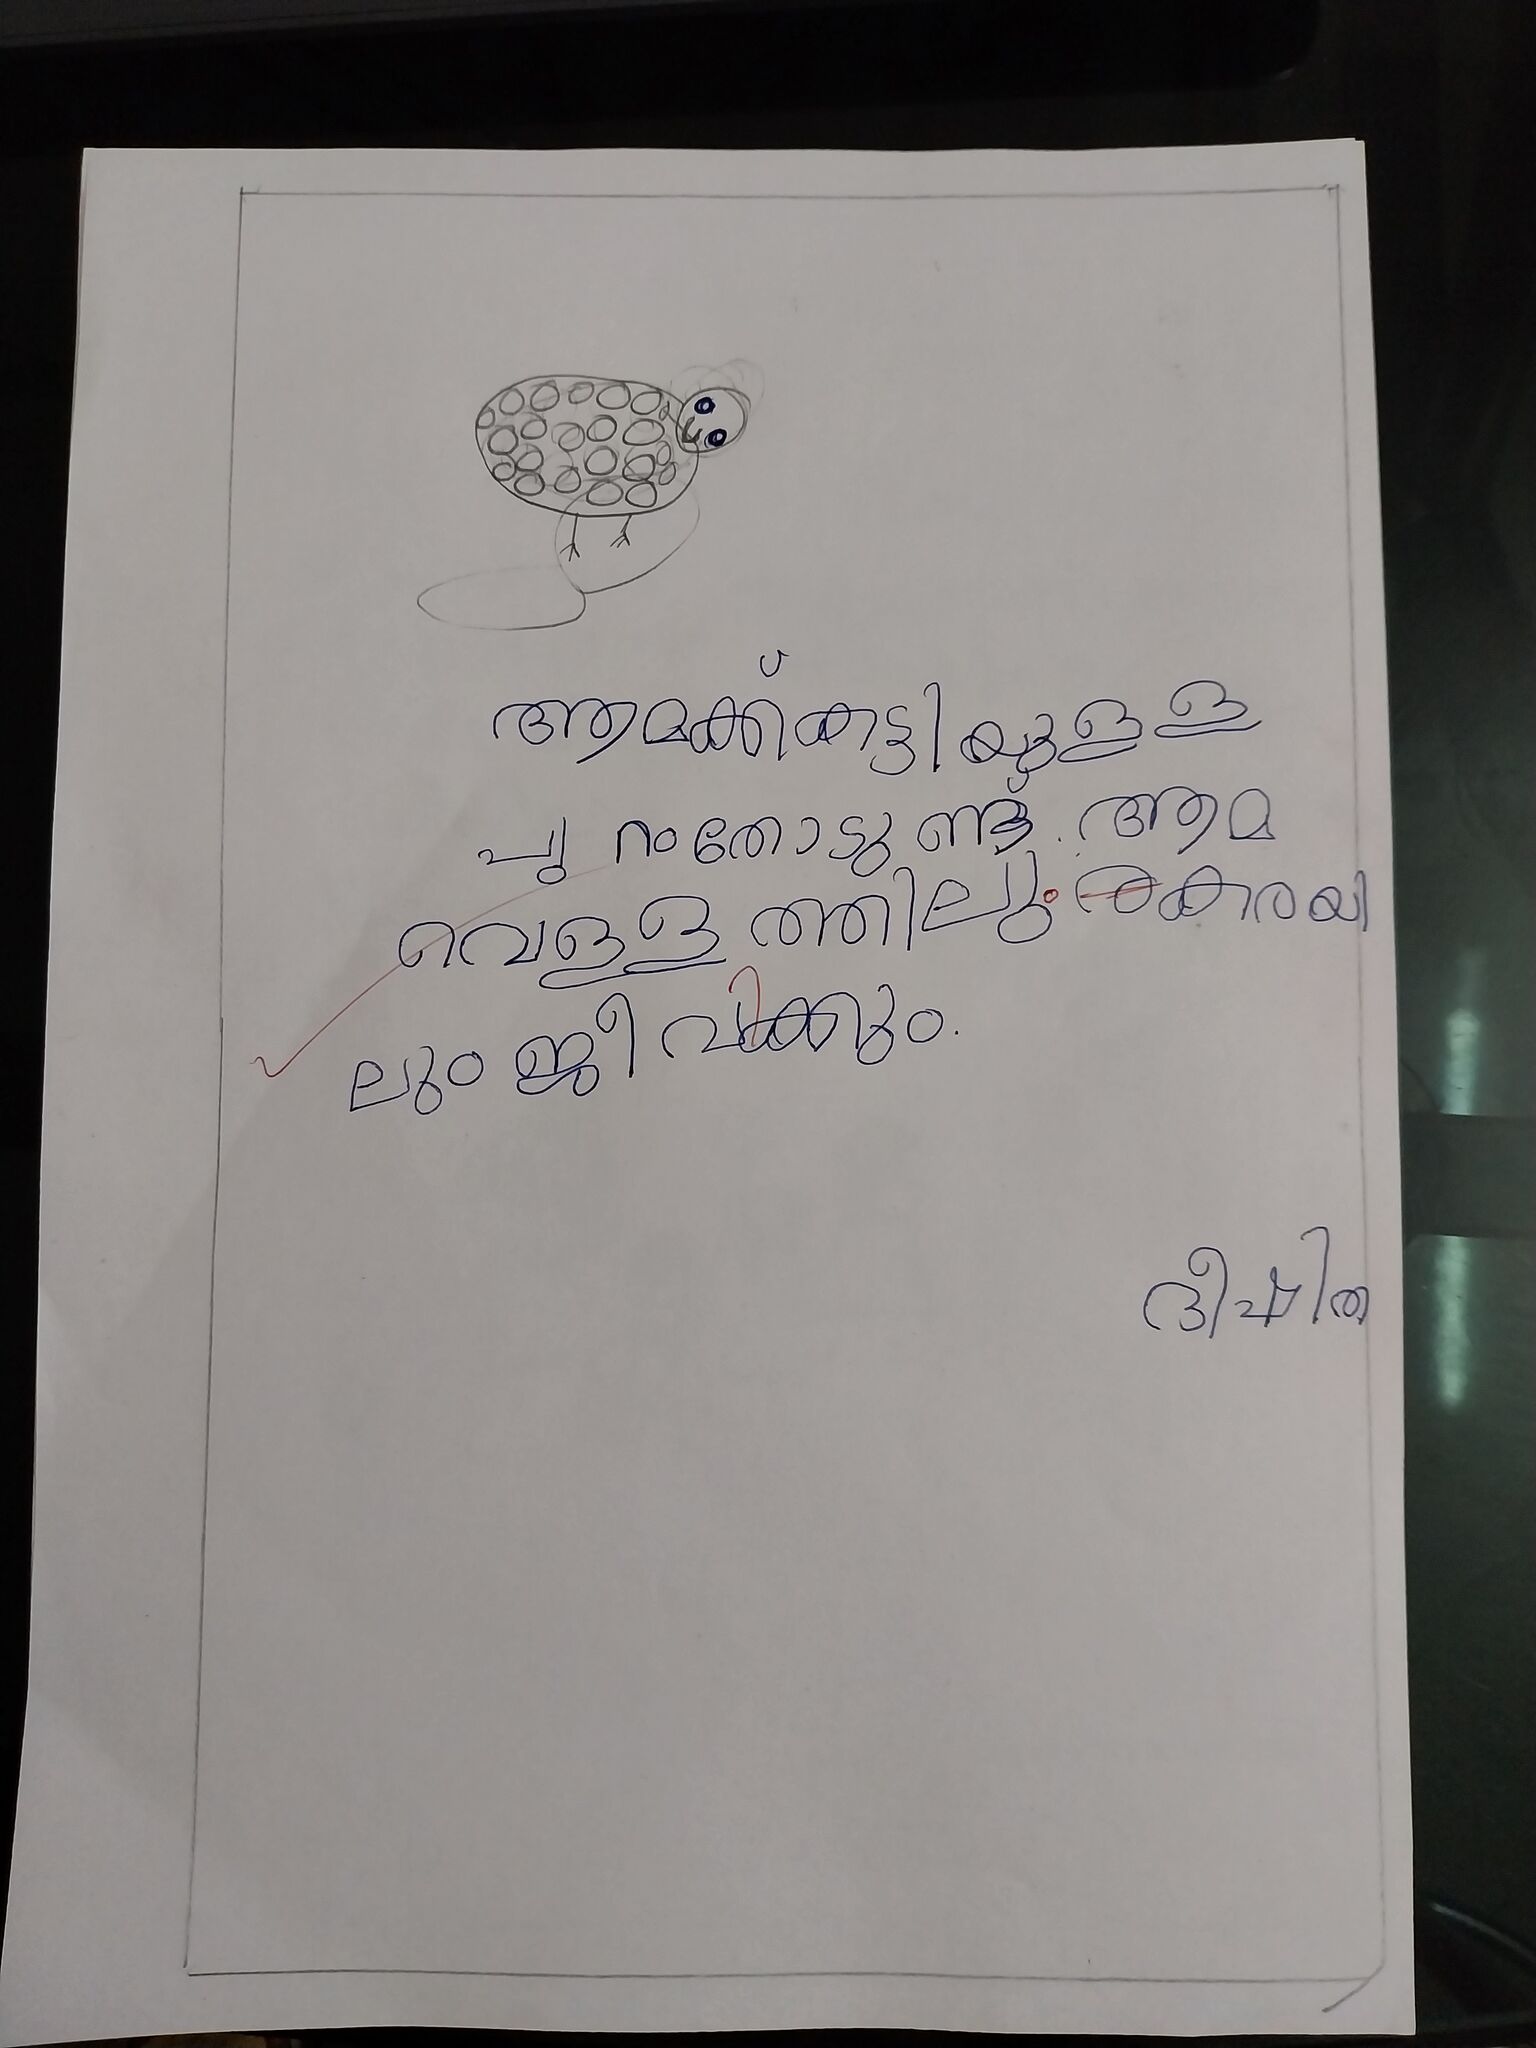 ആമക്ക് കട്ടിയുള്ള
പുറംതോടുണ്ട്. ആമ
വെള്ളത്തിലും കരയി
ലും ജീവിക്കും.
ദീപ്തി